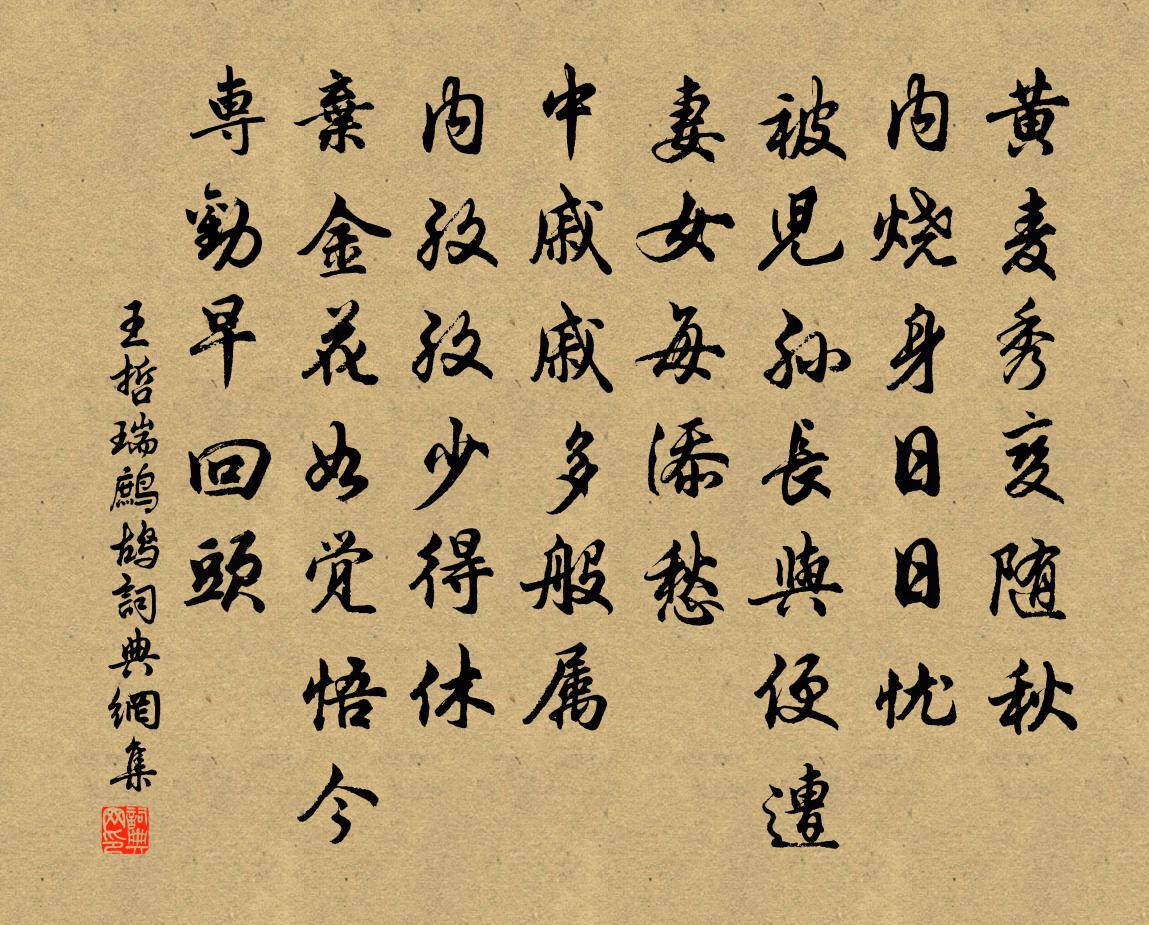 黄麦秀变随秋
内烧身日日忧
被児孙長與便遭
妻女每添愁
中戚戚多般属
内孜孜少得休
棄金花如覚悟今
専勸早回頭
王哲瑞鷓鴣詞典網集
詞典网印